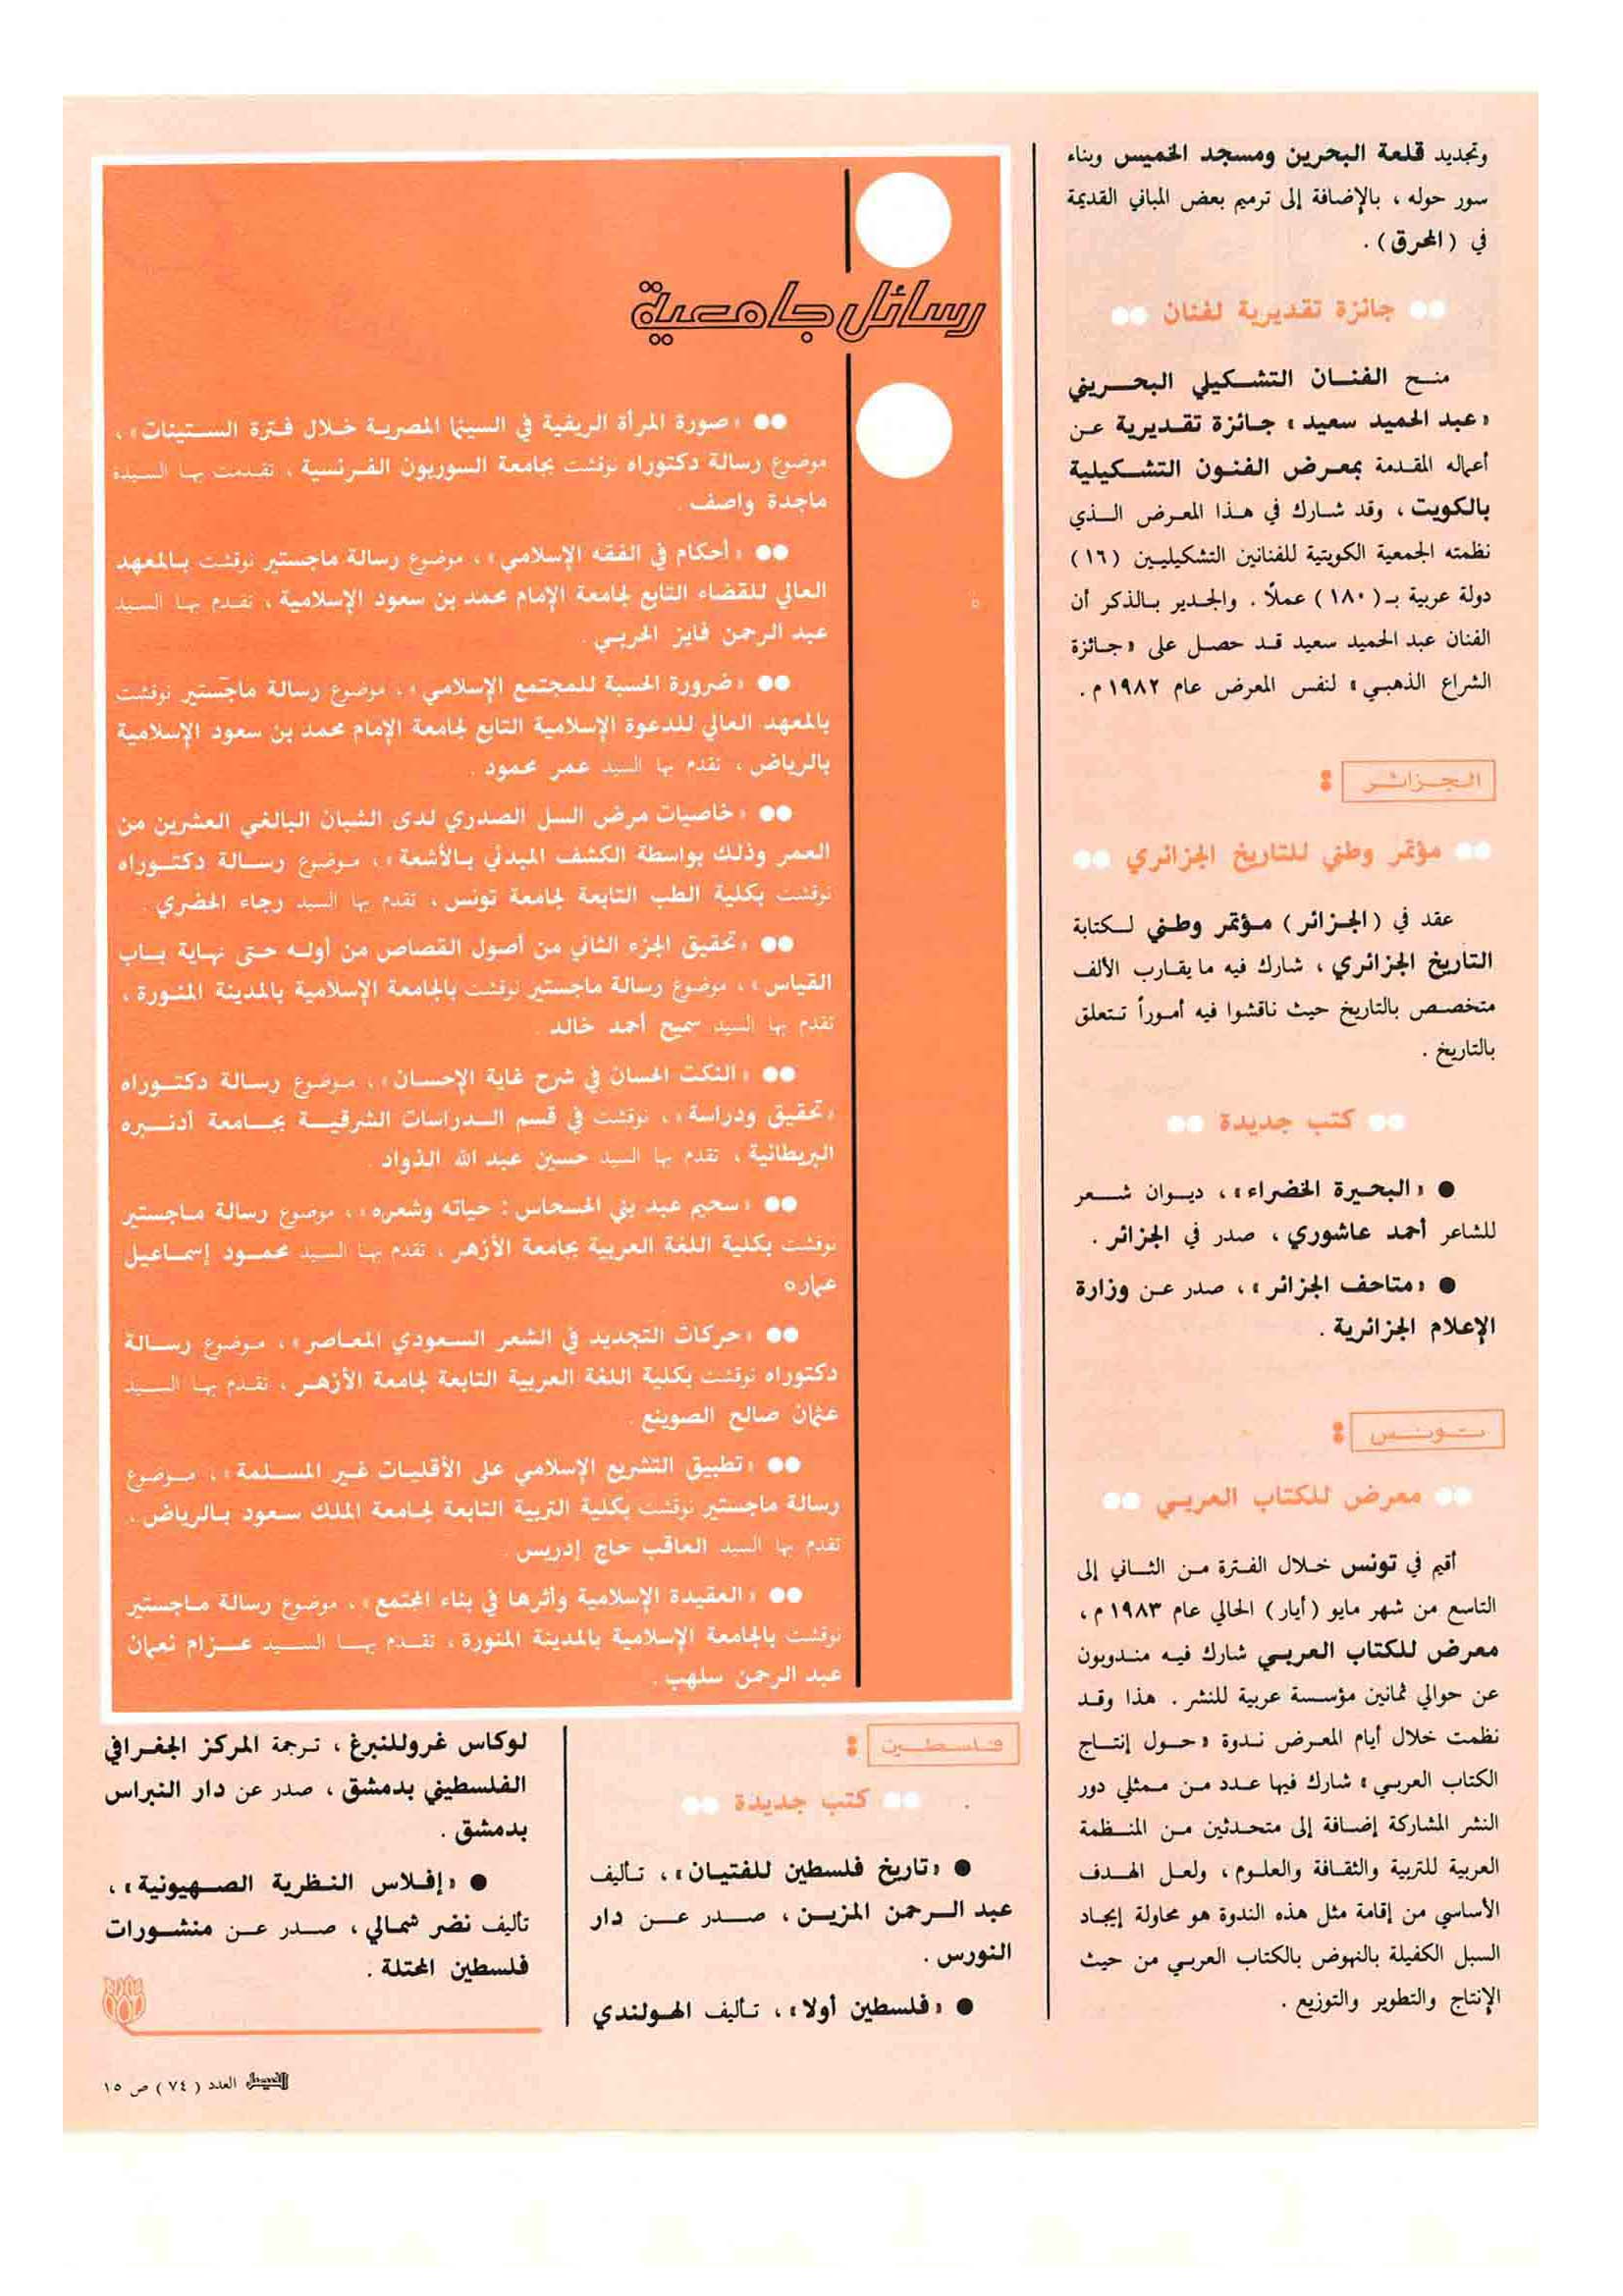 وتجديد قلعة البحرين ومسجد الخميس وبناء
سور حوله ، بالإضافة إلى ترميم بعض المباني القديمة
في ( المحرق ) .
●● جائزة تقديرية لفنان ●●
منح الفنان التشكيلي البحريني
«عبد الحميد سعيد» جائزة تقديرية عن
أعماله المقدمة بمعرض الفنون التشكيلية
بالكويت ، وقد شارك في هذا المعرض الذي
نظمته الجمعية الكويتية للفنانين التشكيليين (١٦)
دولة عربية بـ (١٨٠) عملاً . والجدير بالذكر أن
الفنان عبد الحميد سعيد قد حصل على «جائزة
الشراع الذهبي» لنفس المعرض عام ١٩٨٢ م .
الجزائر :
●● مؤتمر وطني للتاريخ الجزائري ●●
عقد في ( الجزائر ) مؤتمر وطني لكتابة
التاريخ الجزائري ، شارك فيه ما يقارب الألف
متخصص بالتاريخ حيث ناقشوا فيه أموراً تتعلق
بالتاريخ .
●● كتب جديدة ●●
● «البحيرة الخضراء» ، ديوان شعر
للشاعر أحمد عاشوري ، صدر في الجزائر .
● «متاحف الجزائر» ، صدر عن وزارة
الإعلام الجزائرية .
تونس :
●● معرض للكتاب العربي ●●
أقيم في تونس خلال الفترة من الثاني إلى
التاسع من شهر مايو (أيار) الحالي عام ١٩٨٣ م ،
معرض للكتاب العربي شارك فيه مندوبون
عن حوالي ثمانين مؤسسة عربية للنشر . هذا وقد
نظمت خلال أيام المعرض ندوة «حول إنتاج
الكتاب العربي» شارك فيها عدد من ممثلي دور
النشر المشاركة إضافة إلى متحدثين من المنظمة
العربية للتربية والثقافة والعلوم ، ولعل الهدف
الأساسي من إقامة مثل هذه الندوة هو محاولة إيجاد
السبل الكفيلة بالنهوض بالكتاب العربي من حيث
الإنتاج والتطوير والتوزيع .
رسائل جامعية
●● «صورة المرأة الريفية في السينما المصرية خلال فترة الستينات» ،
موضوع رسالة دكتوراه نوقشت بجامعة السوربون الفرنسية ، تقدمت بها السيدة
ماجدة واصف .
●● «أحكام في الفقه الإسلامي» ، موضوع رسالة ماجستير نوقشت بالمعهد
العالي للقضاء التابع لجامعة الإمام محمد بن سعود الإسلامية ، تقدم بها السيد
عبد الرحمن فايز الحربي .
●● «ضرورة الحسبة للمجتمع الإسلامي» ، موضوع رسالة ماجستير نوقشت
بالمعهد العالي للدعوة الإسلامية التابع لجامعة الإمام محمد بن سعود الإسلامية
بالرياض ، تقدم بها السيد عمر محمود .
●● «خاصيات مرض السل الصدري لدى الشبان البالغي العشرين من
العمر وذلك بواسطة الكشف المبدئي بالأشعة» ، موضوع رسالة دكتوراه
نوقشت بكلية الطب التابعة لجامعة تونس ، تقدم بها السيد رجاء الخضري .
●● «تحقيق الجزء الثاني من أصول القصاص من أوله حتى نهاية باب
القياس» ، موضوع رسالة ماجستير نوقشت بالجامعة الإسلامية بالمدينة المنورة ،
تقدم بها السيد سميح أحمد خالد .
●● «النكت الحسان في شرح غاية الإحسان» ، موضوع رسالة دكتوراه
«تحقيق ودراسة» ، نوقشت في قسم الدراسات الشرقية بجامعة أدنبره
البريطانية ، تقدم بها السيد حسين عبد الله الذواد .
●● «سحيم عبد بني الحسحاس : حياته وشعره» ، موضوع رسالة ماجستير
نوقشت بكلية اللغة العربية بجامعة الأزهر ، تقدم بها السيد محمود إسماعيل
عماره
●● «حركات التجديد في الشعر السعودي المعاصر» ، موضوع رسالة
دكتوراه نوقشت بكلية اللغة العربية التابعة لجامعة الأزهر ، تقدم بها السيد
عثمان صالح الصوينع .
●● «تطبيق التشريع الإسلامي على الأقليات غير المسلمة» ، موضوع
رسالة ماجستير نوقشت بكلية التربية التابعة لجامعة الملك سعود بالرياض ،
تقدم بها السيد العاقب حاج إدريس .
●● «العقيدة الإسلامية وأثرها في بناء المجتمع» ، موضوع رسالة ماجستير
نوقشت بالجامعة الإسلامية بالمدينة المنورة ، تقدم بها السيد عزام نعمان
عبد الرحمن سلهب .
فلسطين :
●● كتب جديدة ●●
● «تاريخ فلسطين للفتيان» ، تأليف
عبد الرحمن المزين ، صدر عن دار
النورس .
● «فلسطين أولا» ، تأليف الهولندي
لوكاس غروللنبرغ ، ترجمة المركز الجغرافي
الفلسطيني بدمشق ، صدر عن دار النبراس
بدمشق .
● «إفلاس النظرية الصهيونية» ،
تأليف نضر شمالي ، صدر عن منشورات
فلسطين المحتلة .
الفيصل العدد ( ٧٤ ) ص ١٥